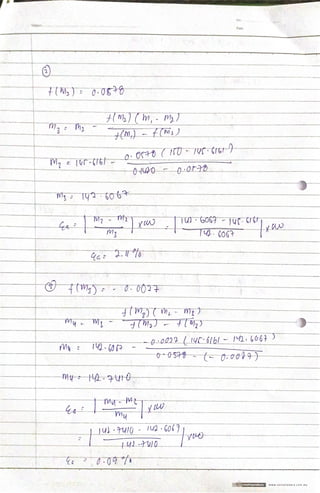 ②
f(m₂) = 0.0578
m₃ = m₂ - f(m₂) (m₁ - m₂) / f(m₁) - f(m₂)
m₃ = 145.6161 - 0.0578 (150 - 145.6161) / - 0.0578
m₃ = 142.6067
εa = | m₃ - m₂ / m₃ | x100 = | 142.6067 - 145.6161 / 142.6067 | x100
εa = 2.11%
③ f(m₃) = - 0.0027
m₄ = m₃ - f(m₃) (m₂ - m₃) / f(m₂) - f(m₃)
m₄ = 142.6067 - -0.0027 (145.6161 - 142.6067) / 0.0578 - (- 0.0027)
m₄ = 142.7410
εa = | m₄ - m₃ / m₄ | x100
= | 142.7410 - 142.6067 / 142.7410 | x100
εa = 0.09%